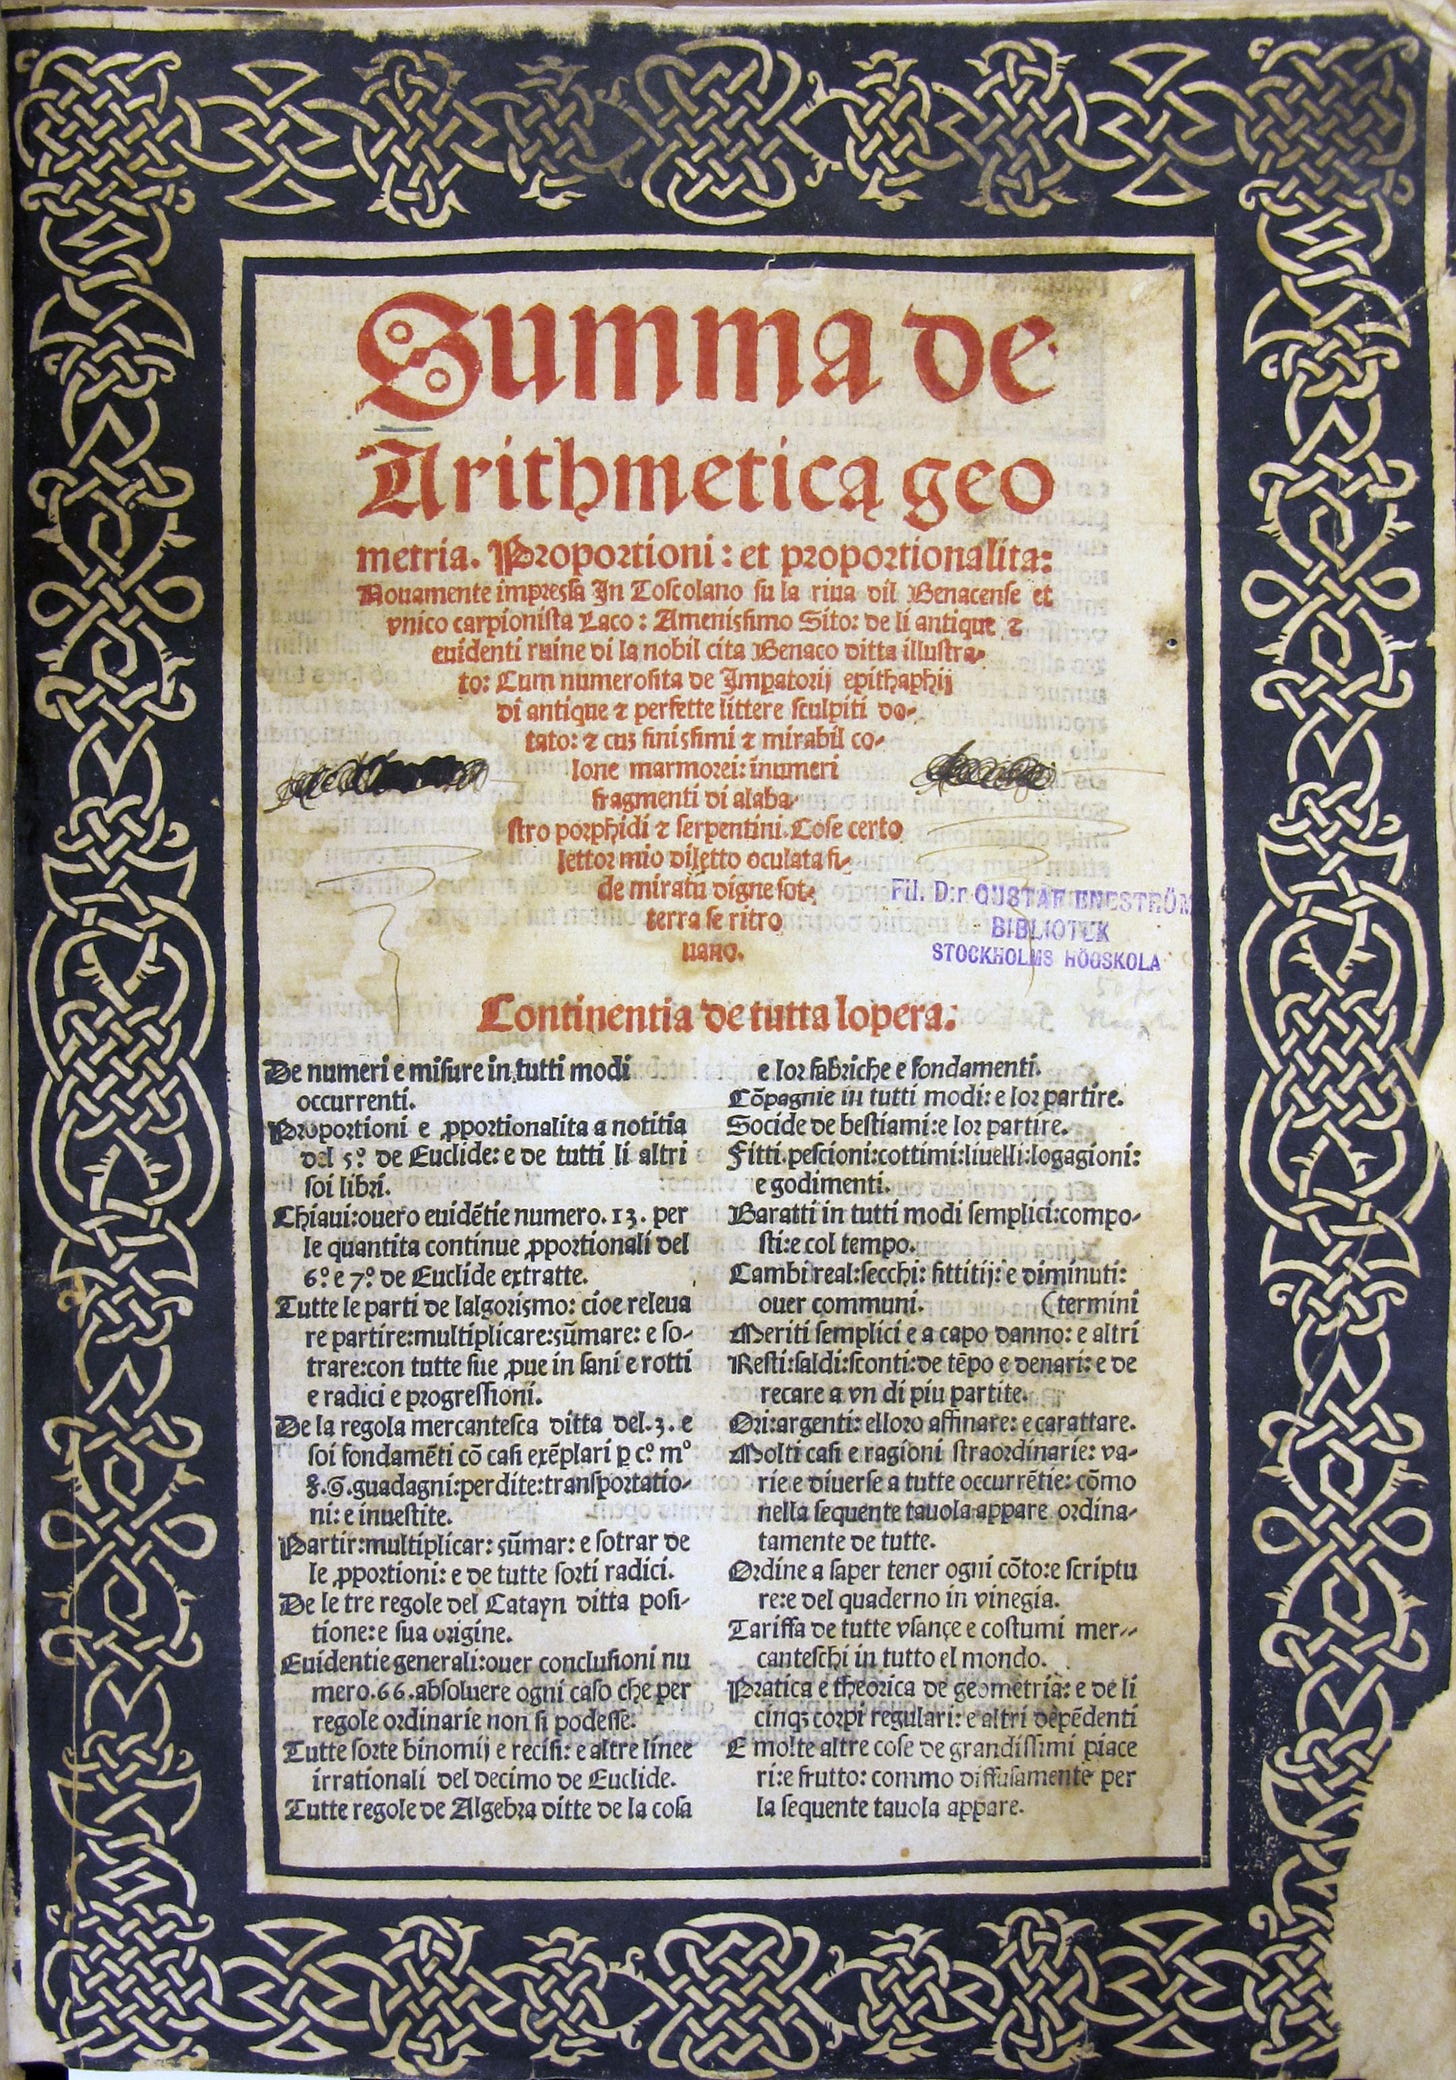 Summa de
Arithmetica geo
metria. Proportioni: et proportionalita:
Nouamente impressa In Toscolano su la riua dil Benacense et
vnico carpionista Laco: Amenissimo Sito: de li antique ⁊
euidenti ruine di la nobil cita Benaco ditta illustra-
to: Cum numerosita de Impatorij epithaphij
di antique ⁊ perfette littere sculpiti do-
tato: ⁊ cuȝ finissimi ⁊ mirabil co-
lone marmorei: īnumeri
fragmenti di alaba-
stro porphidi ⁊ serpentini. Cose certo
lettor mio diletto oculata fi-
de miratu digne sot-
terra se ritro
uano.
Fil. D:r GUSTAF ENESTRÖM
BIBLIOTEK
STOCKHOLMS HÖGSKOLA
Continentia de tutta lopera:
De numeri e misure in tutti modi
occurrenti.
Proportioni e ꝓportionalita a notitia
del 5º de Euclide: e de tutti li altri
soi libri.
Chiaui: ouero euidētie numero. 13. per
le quantita continue ꝓportionali del
6º e 7º de Euclide extratte.
Tutte le parti de lalgorismo: cioe releua
re partire: multiplicare: sūmare: e so-
trare: con tutte sue ꝓue in sani e rotti
e radici e progressioni.
De la regola mercantesca ditta del. 3. e
soi fondamēti cō casi exēplari ꝑ cº mº
§. S. guadagni: perdite: transportatio-
ni: e inuestite.
Partir: multiplicar: sūmar: e sotrar de
le ꝓportioni: e de tutte sorti radici.
De le tre regole del Catayn ditta posi-
tione: e sua origine.
Euidentie generali: ouer conclusioni nu
mero. 66. absoluere ogni caso che per
regole ordinarie non si podesse.
Tutte sorte binomij e recisi: e altre linee
irrationali del decimo de Euclide.
Tutte regole de Algebra ditte de la cosa
e lor fabriche e fondamenti.
Cōpagnie in tutti modi: e lor partire.
Socide de bestiami: e lor partire.
Fitti: pescioni: cottimi: liuelli: logagioni:
e godimenti.
Baratti in tutti modi semplici: compo-
sti: e col tempo.
Cambi real: secchi: fittitij: e diminuti:
ouer communi.
(termini
Meriti semplici e a capo danno: e altri
Resti: saldi: sconti: de tēpo e denari: e de
recare a vn di piu partite.
Ori: argenti: e lloro affinare: e carattare.
Molti casi e ragioni straordinarie: va-
rie e diuerse a tutte occurrētie: cōmo
nella sequente tauola appare ordina-
tamente de tutte.
Ordine a saper tener ogni cōto: e scriptu
re: e del quaderno in vinegia.
Tariffa de tutte vsançe e costumi mer-
canteschi in tutto el mondo.
Pratica e theorica de geometria: e de li
cinqȝ corpi regulari: e altri dēpēdenti
E molte altre cose de grandissimi piace
ri: e frutto: commo diffusamente per
la sequente tauola appare.